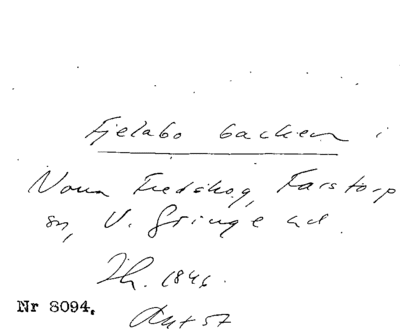 Fjelabo backen i
Norra Fredskog, Farstorp
sn, V. Göinge hd.
Th. 1846.
Nr 8094.